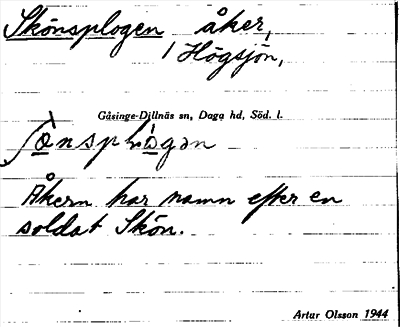 Skönsplogen åker,
/ Högsjön,
Gåsinge-Dillnäs sn, Daga hd, Söd. l.
Åkern har namn efter en
soldat Skön.
Artur Olsson 1944